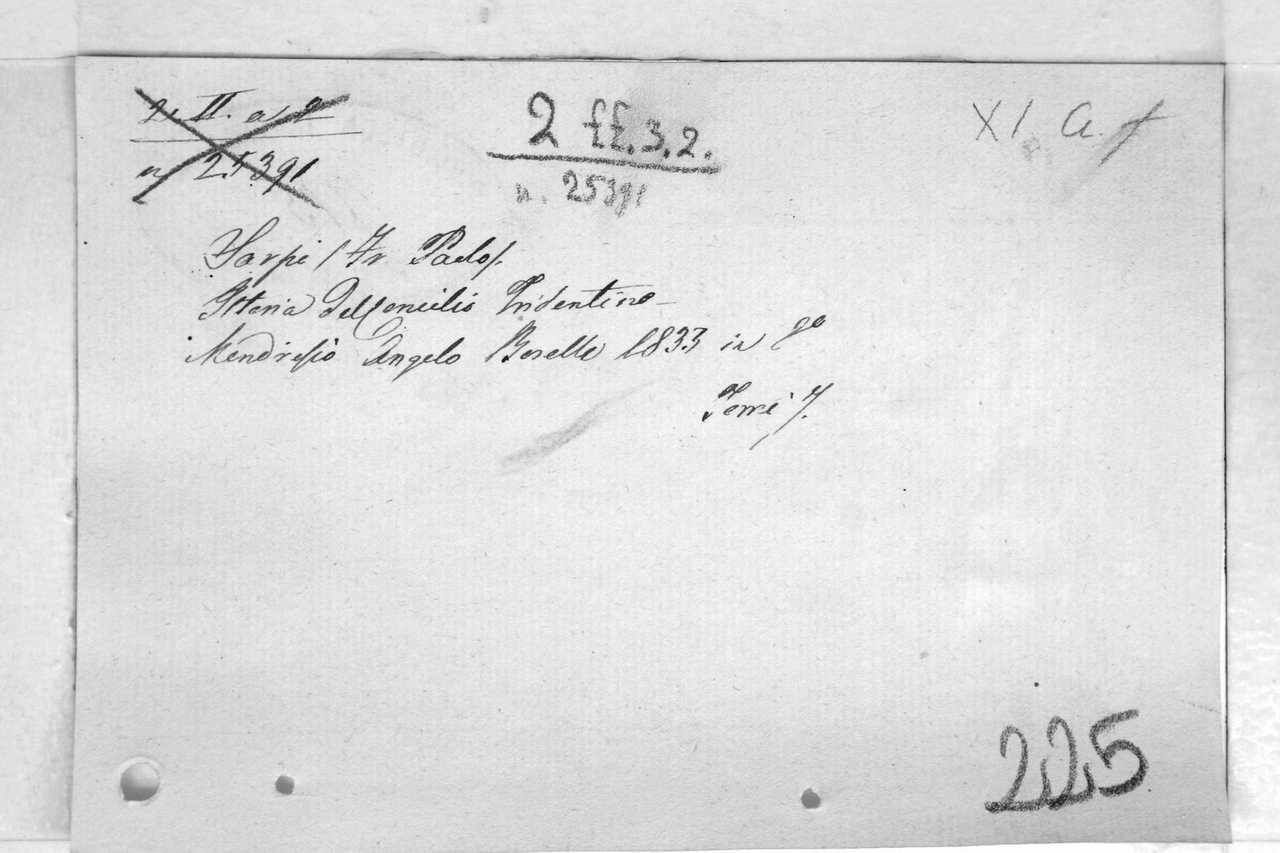 2. II. a 2
n 25391
2 ff. 3. 2.
n. 25391
XI a. f
Sarpi / Fr. Paolo /.
Istoria del Concilio Tridentino
Mendrisio Angelo Borella 1833 in 8º
Tomi 7.
225